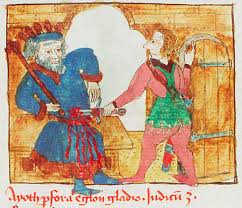 Ayoth pfora Eglon gladio. Iudicũ 3.